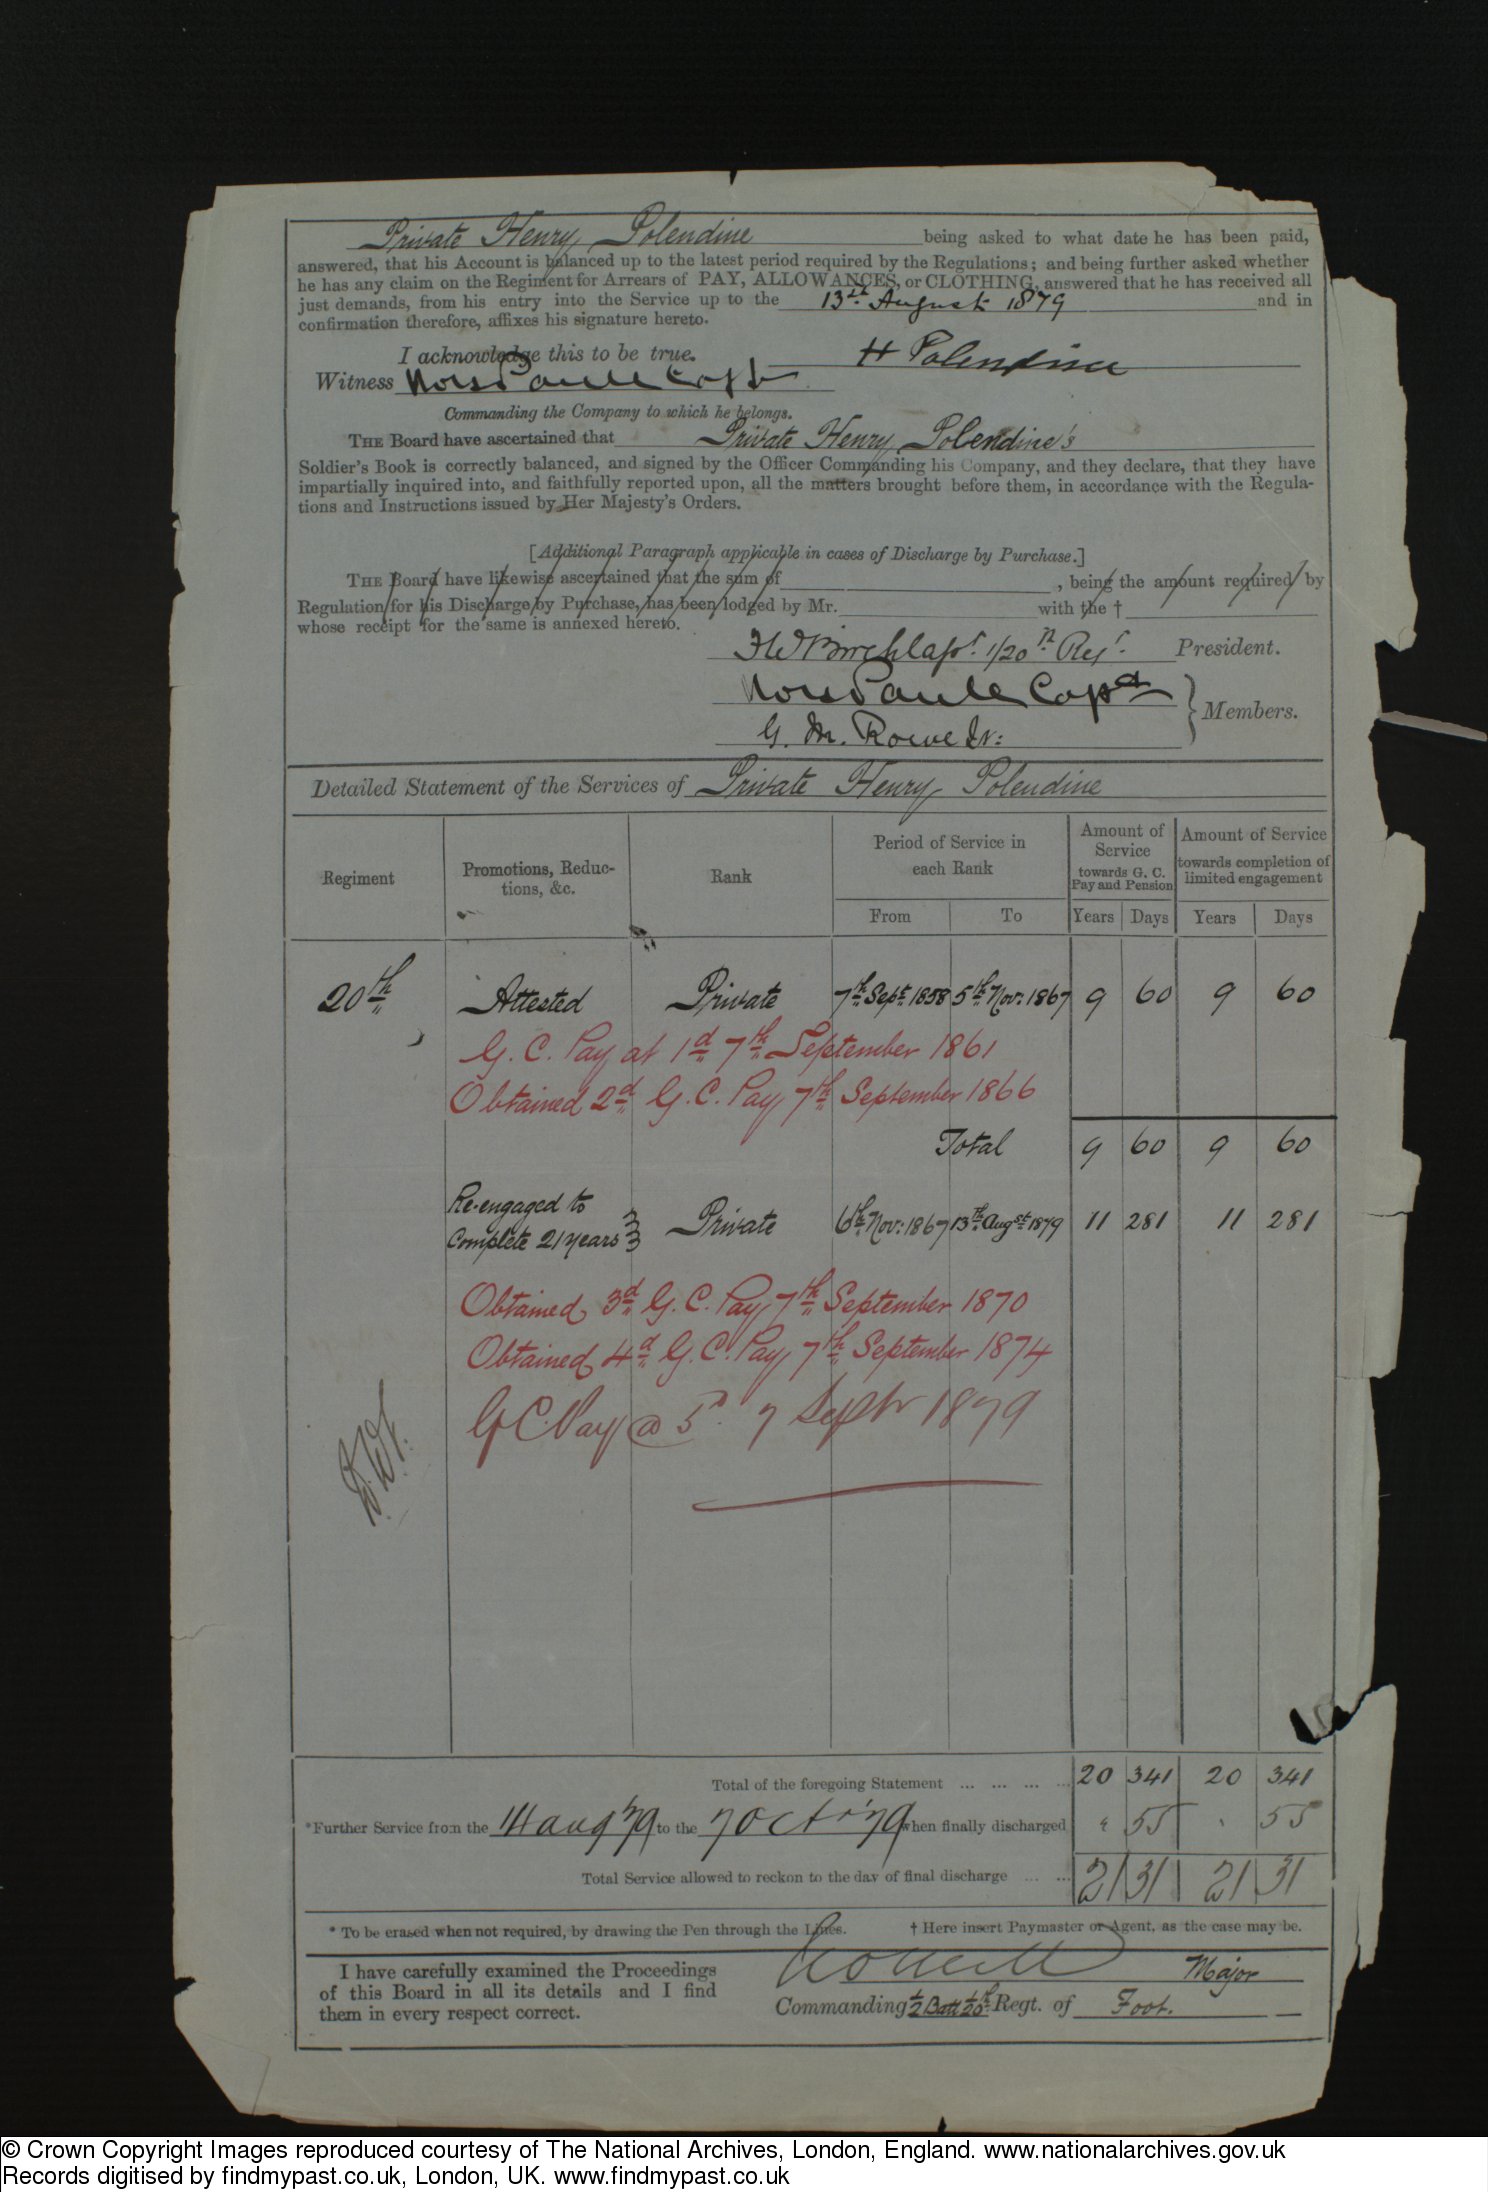 Private Henry Polendine being asked to what date he has been paid,
answered, that his Account is balanced up to the latest period required by the Regulations; and being further asked whether
he has any claim on the Regiment for Arrears of PAY, ALLOWANCES, or CLOTHING, answered that he has received all
just demands, from his entry into the Service up to the 13th August 1879 and in
confirmation therefore, affixes his signature hereto.
I acknowledge this to be true. H Polendine
Witness Capt
Commanding the Company to which he belongs.
THE Board have ascertained that Private Henry Polendine's
Soldier's Book is correctly balanced, and signed by the Officer Commanding his Company, and they declare, that they have
impartially inquired into, and faithfully reported upon, all the matters brought before them, in accordance with the Regula-
tions and Instructions issued by Her Majesty's Orders.
[Additional Paragraph applicable in cases of Discharge by Purchase.]
THE Board have likewise ascertained that the sum of , being the amount required by
Regulation for his Discharge by Purchase, has been lodged by Mr. with the †
whose receipt for the same is annexed hereto.
1/20th Regt. President.
Capt
Members.
G. M. Rowe Lt:
Detailed Statement of the Services of Private Henry Polendine
Regiment Promotions, Reduc-tions, &c. Rank Period of Service in each Rank Amount of Service towards G. C. Pay and Pension Amount of Service towards completion of limited engagement
From To Years Days Years Days
20th Attested Private 7th Sept 1858 5th Nov: 1867 9 60 9 60
G. C. Pay at 1d 7th September 1861
Obtained 2d G. C. Pay 7th September 1866
Total 9 60 9 60
Re-engaged to
Complete 21 years Private 6th Nov: 1867 13th Augst 1879 11 281 11 281
Obtained 3d G. C. Pay 7th September 1870
Obtained 4d G. C. Pay 7th September 1874
G C Pay @ 5d 7 Septr 1879
Total of the foregoing Statement ... ... ... ... 20 341 20 341
*Further Service from the 14 aug '79 to the 7 Oct '79 when finally discharged " 55 " 55
Total Service allowed to reckon to the day of final discharge ... ... 21 31 21 31
* To be erased when not required, by drawing the Pen through the Lines. † Here insert Paymaster or Agent, as the case may be.
I have carefully examined the Proceedings
of this Board in all its details and I find
them in every respect correct.
Major
Commanding 1/2 Batt 20th Regt. of Foot.
© Crown Copyright Images reproduced courtesy of The National Archives, London, England. www.nationalarchives.gov.uk
Records digitised by findmypast.co.uk, London, UK. www.findmypast.co.uk